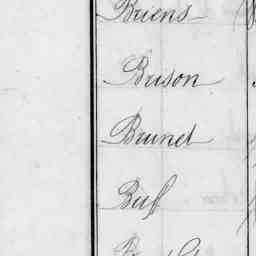 Briens
Brison
Brunet
Buf